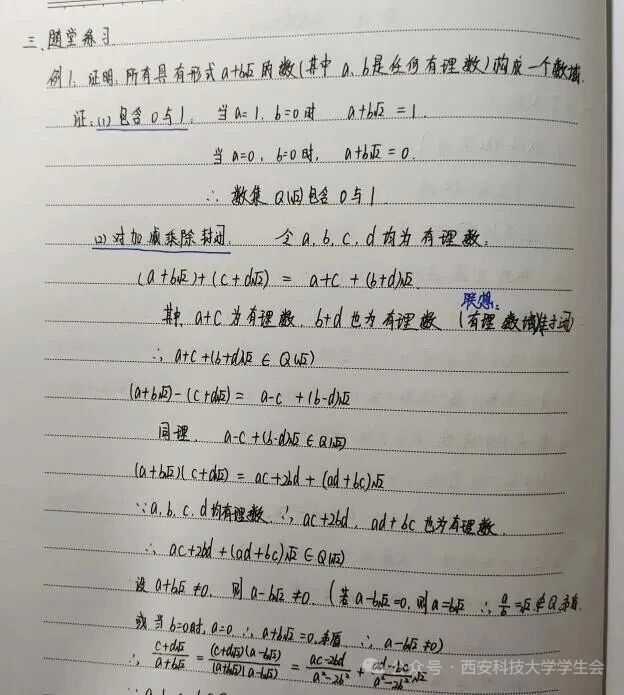 三、随堂练习
例1. 证明:所有具有形式 a+b√2 的数(其中 a、b是任何有理数)构成一个数域.
证:(1)包含0与1. 当a=1, b=0时 a+b√2 = 1.
当a=0, b=0时, a+b√2 = 0.
∴ 数集 Q(√2)包含0与1
(2)对加减乘除封闭. 令a, b, c, d均为有理数.
(a+b√2)+(c+d√2) = a+c + (b+d)√2
联想:
其中 a+c为有理数, b+d也为有理数 (有理数域封闭)
∴ a+c+(b+d)√2 ∈ Q(√2)
(a+b√2)-(c+d√2) = a-c +(b-d)√2
同理, a-c+(b-d)√2 ∈ Q(√2)
(a+b√2)(c+d√2) = ac+2bd + (ad+bc)√2
∵a, b, c, d均有理数 ∴ ac+2bd, ad+bc 也为有理数.
∴ ac+2bd+(ad+bc)√2 ∈ Q(√2)
设 a+b√2 ≠0, 则 a-b√2 ≠0. (若 a-b√2=0, 则 a=b√2 ∴ a/b=√2 ∉ Q 矛盾.
或当 b=0时, a=0 ∴ a+b√2=0.矛盾 ∴ a-b√2 ≠0)
∴ (c+d√2)/(a+b√2) = (c+d√2)(a-b√2)/(a+b√2)(a-b√2) = (ac-2bd)/(a²-2b²) + (ad-bc)/(a²-2b²)√2
公众号 · 西安科技大学学生会